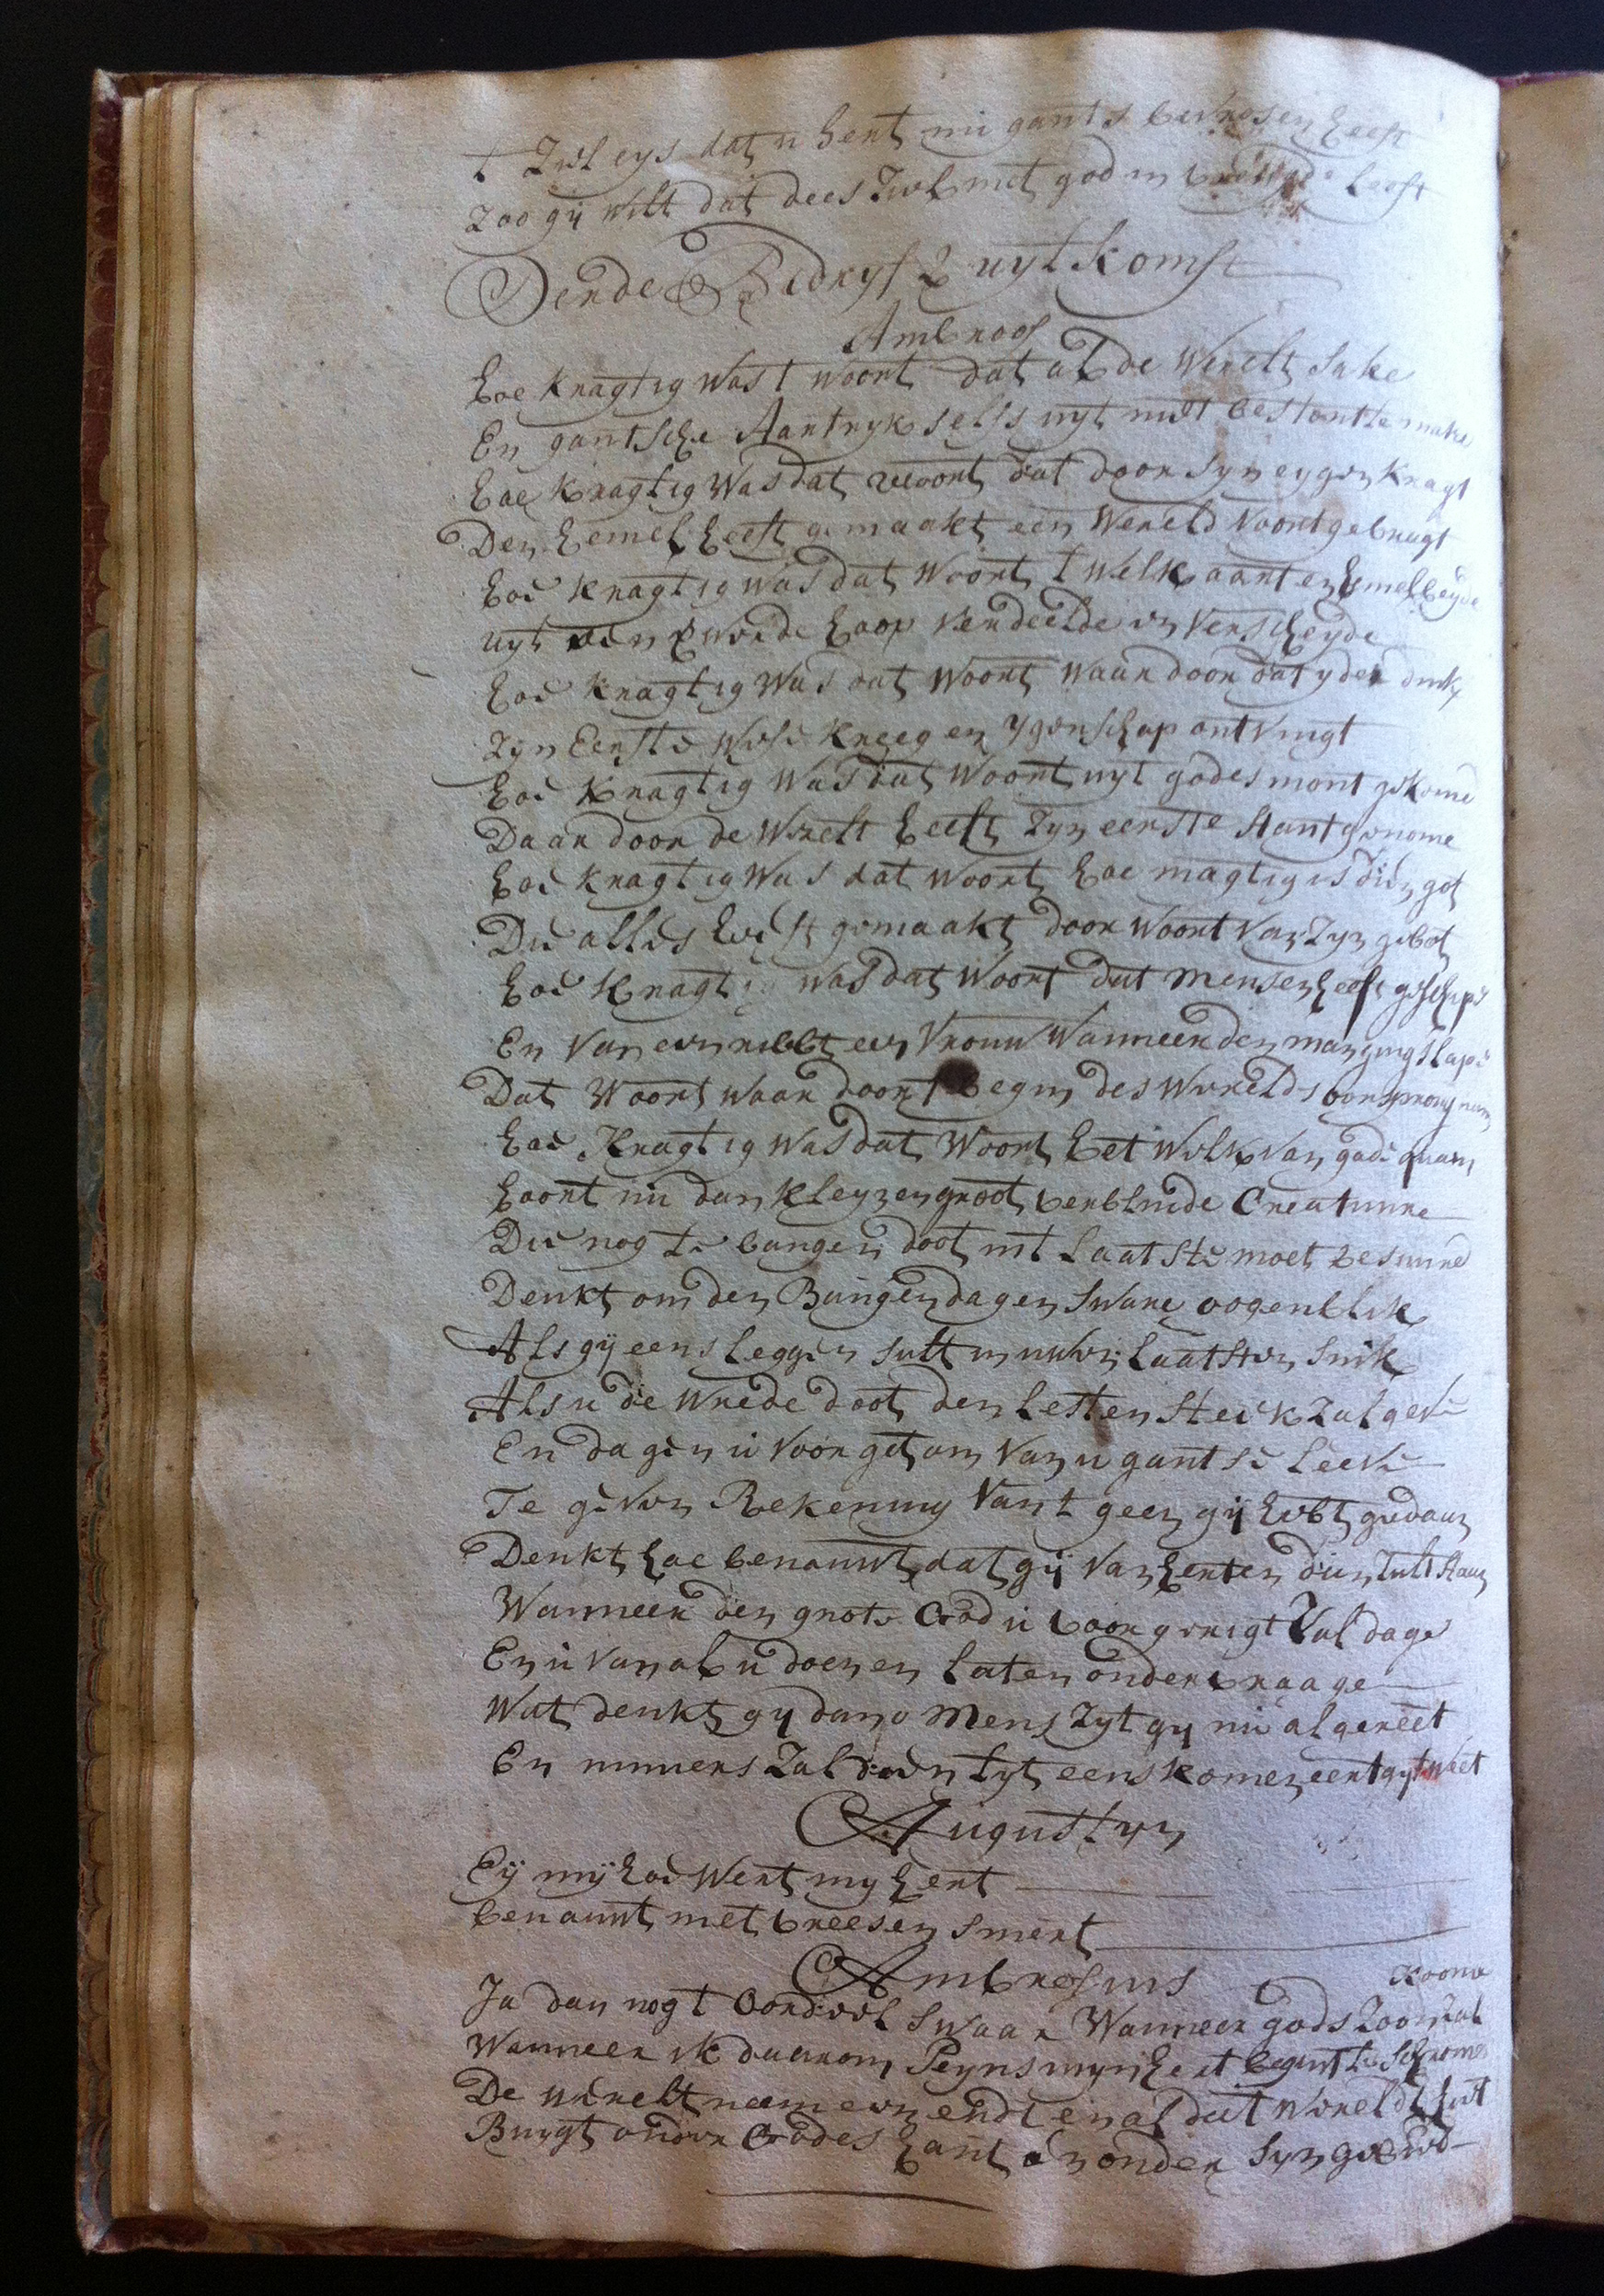 t Zwl eys dat u hert nu gants bevrosen heeft
Zoo gij wilt dat dees Zwl met god in leeft
Derde Bedryf 2 uytkomst
Ambroos
hoe kragtig was t woort dat al de Werelt sake
En gantsche Aartryk selfs uyt niet bestont te make
hoe kragtig was dat woort dat door syn eygen kragt
Den hemel heeft gemaakt een Wereld voortgebragt
hoe kragtig was dat woort t welk aart en hemel beyde
uyt een hoop verdeelde en verscheyde
hoe kragtig was dat woort waar door dat yder dink
Zyn eerste wese kreeg en ygenschap ontvingt
hoe kragtig was dat woort uyt godes mont gekome
Daar door de Werelt heeft Zyn eerste stant genome
hoe kragtig was dat woort hoe magtig is dien got
Die alles heeft gemaakt door woort van Zyn gebot
hoe kragtig was dat woort dat mensen heeft geschape
En van een ribbe t een vrouw Wanneer den man ging slape
Dat Woort waar door t begin des Werelds oorsprong nam
hoe kragtig was dat Woort het welk van gode quam
hoort nu dan kleyn en groot verblinde Creatuure
Die nog de bangen doot int laatste moet besuure
Denkt om den Bangen dag en sware oogenblik
Als gij eens leggen sult in uwen laatsten snik
Als u de wrede doot den lesten steek zal geve
En dagen u voor get om van u gantse leeve
Te geven Rekening van t geen gij hebt gedaan
Denkt hoe benauwt dat gij van herten dan zult staan
Wanneer den groten God u voor gerigt Zal dage
En u van al u doen en laten ondervraage
Wat denkt gy dan o mens Zyt gy nu al gereet
En immers Zal dien tyt eens komen eer t gyt weet
Augustyn
Eij mij hoe wert my hert
benauwt met vrees en smert
Ambrosius
koome
Ja dan nog t oordeel swaar Wanneer gods Zoon zal
Wanneer ik daar om Peyns myn hert begint te schrome
De werelt neem een ende en al dat wereld heet
Buygt onder Godes hant en onder syn gebied